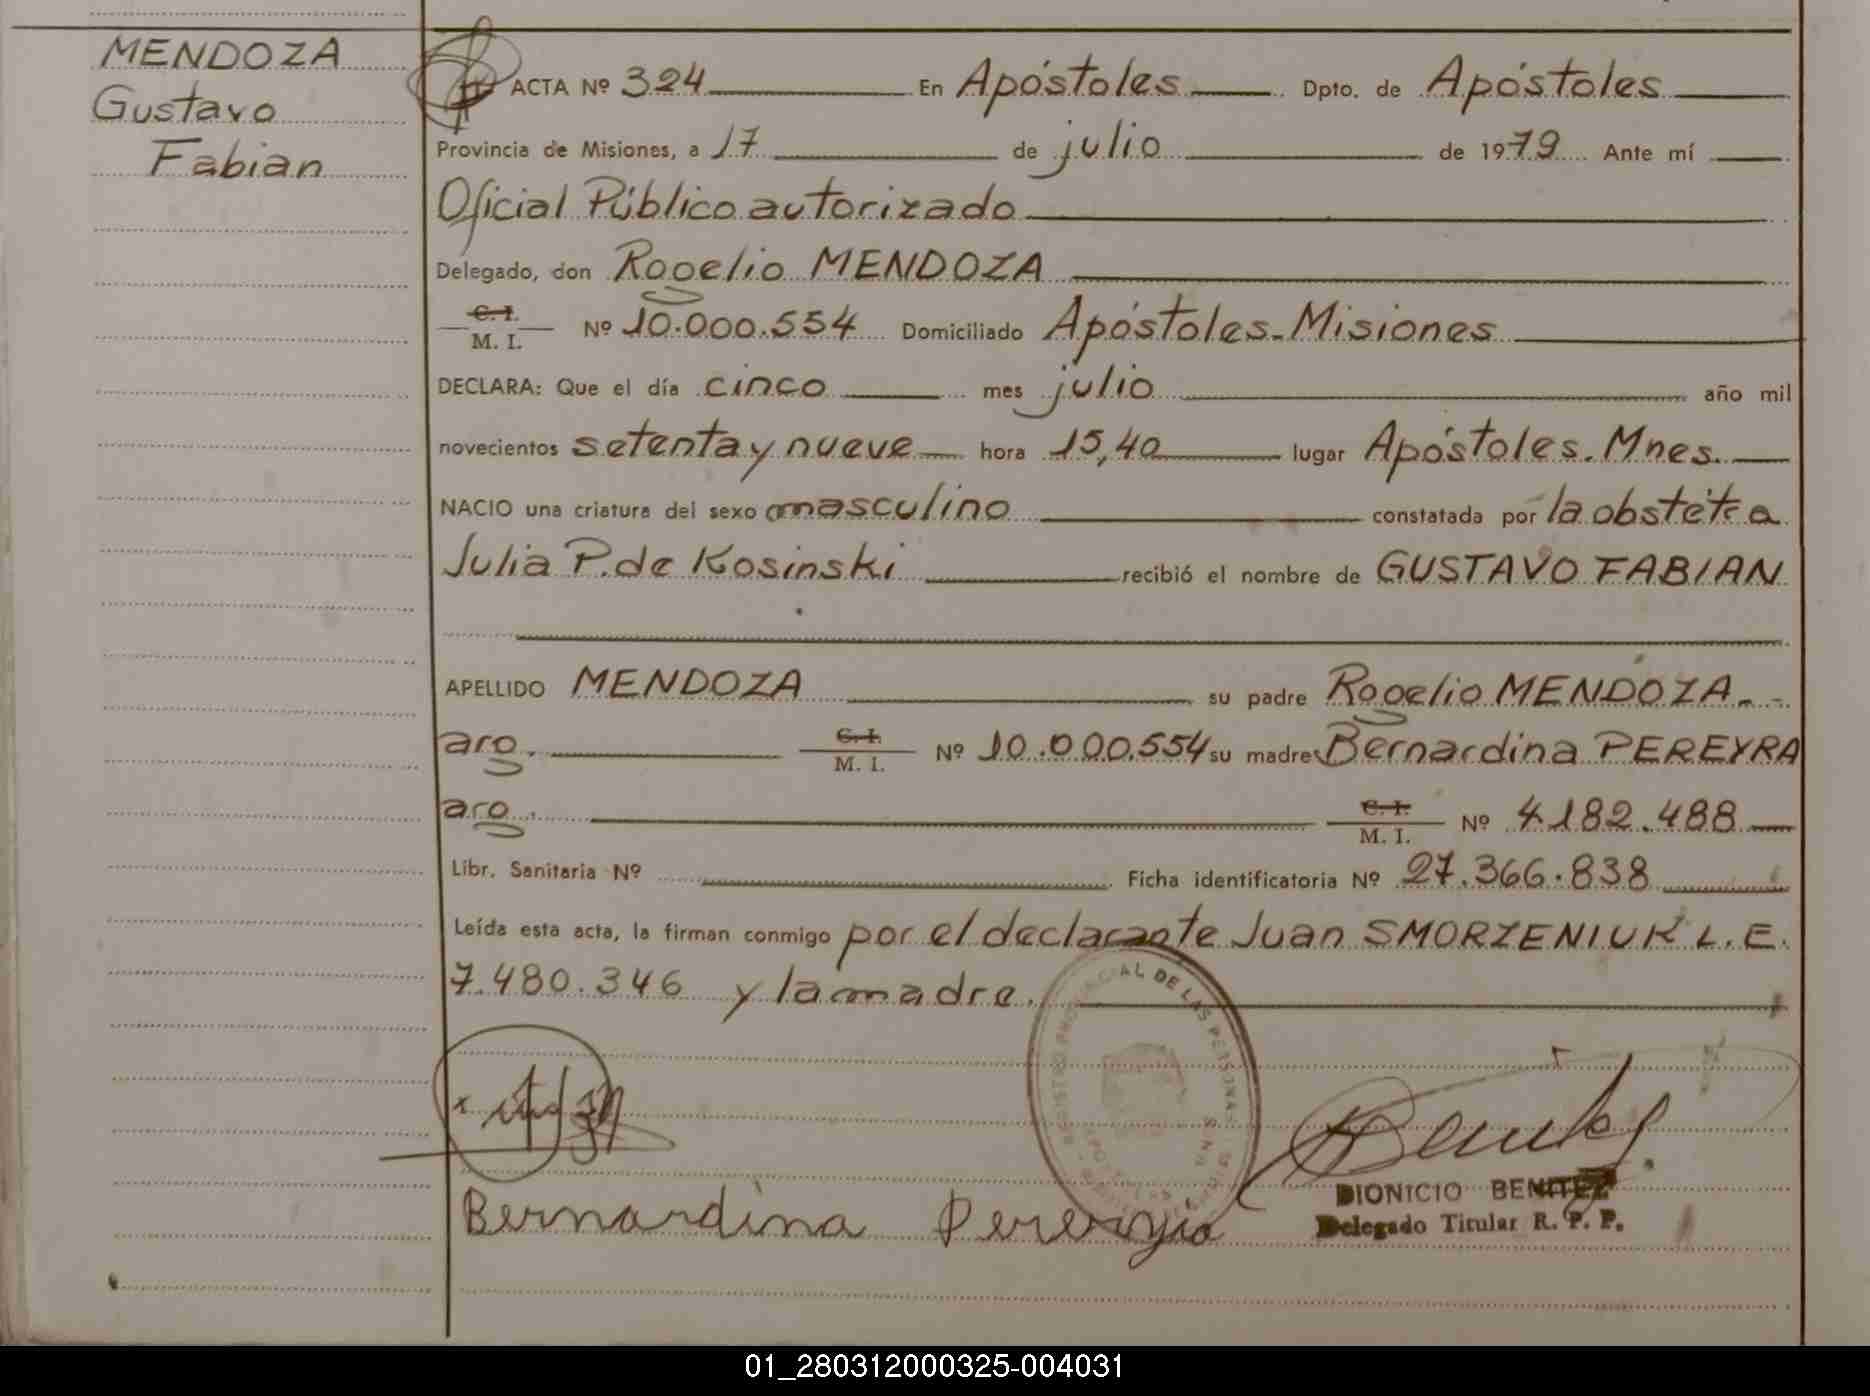 MENDOZA
Gustavo
Fabian
ACTA Nº 324 En Apóstoles Dpto. de Apóstoles
Provincia de Misiones, a 17 de julio de 1979 Ante mí
Oficial Público autorizado
Delegado, don Rogelio MENDOZA
C. I.
M. I. Nº 10.000.554 Domiciliado Apóstoles-Misiones
DECLARA: Que el día cinco mes julio año mil
novecientos setenta y nueve hora 15,40 lugar Apóstoles. Mnes.
NACIO una criatura del sexo masculino constatada por la obstétra
Julia P. de Kosinski recibió el nombre de GUSTAVO FABIAN
APELLIDO MENDOZA su padre Rogelio MENDOZA.-
arg. C. I.
M. I. Nº 10.000.554 su madre Bernardina PEREYRA
arg. C. I.
M. I. Nº 4.182.488
Libr. Sanitaria Nº Ficha identificatoria Nº 27.366.838
Leída esta acta, la firman conmigo por el declarante Juan SMORZENIUK L.E.
7.480.346 y la madre.
REGISTRO PROVINCIAL DE LAS PERSONAS
Bernardina Pereryia
DIONICIO BENITEZ
Delegado Titular R. P. P.
01_280312000325-004031